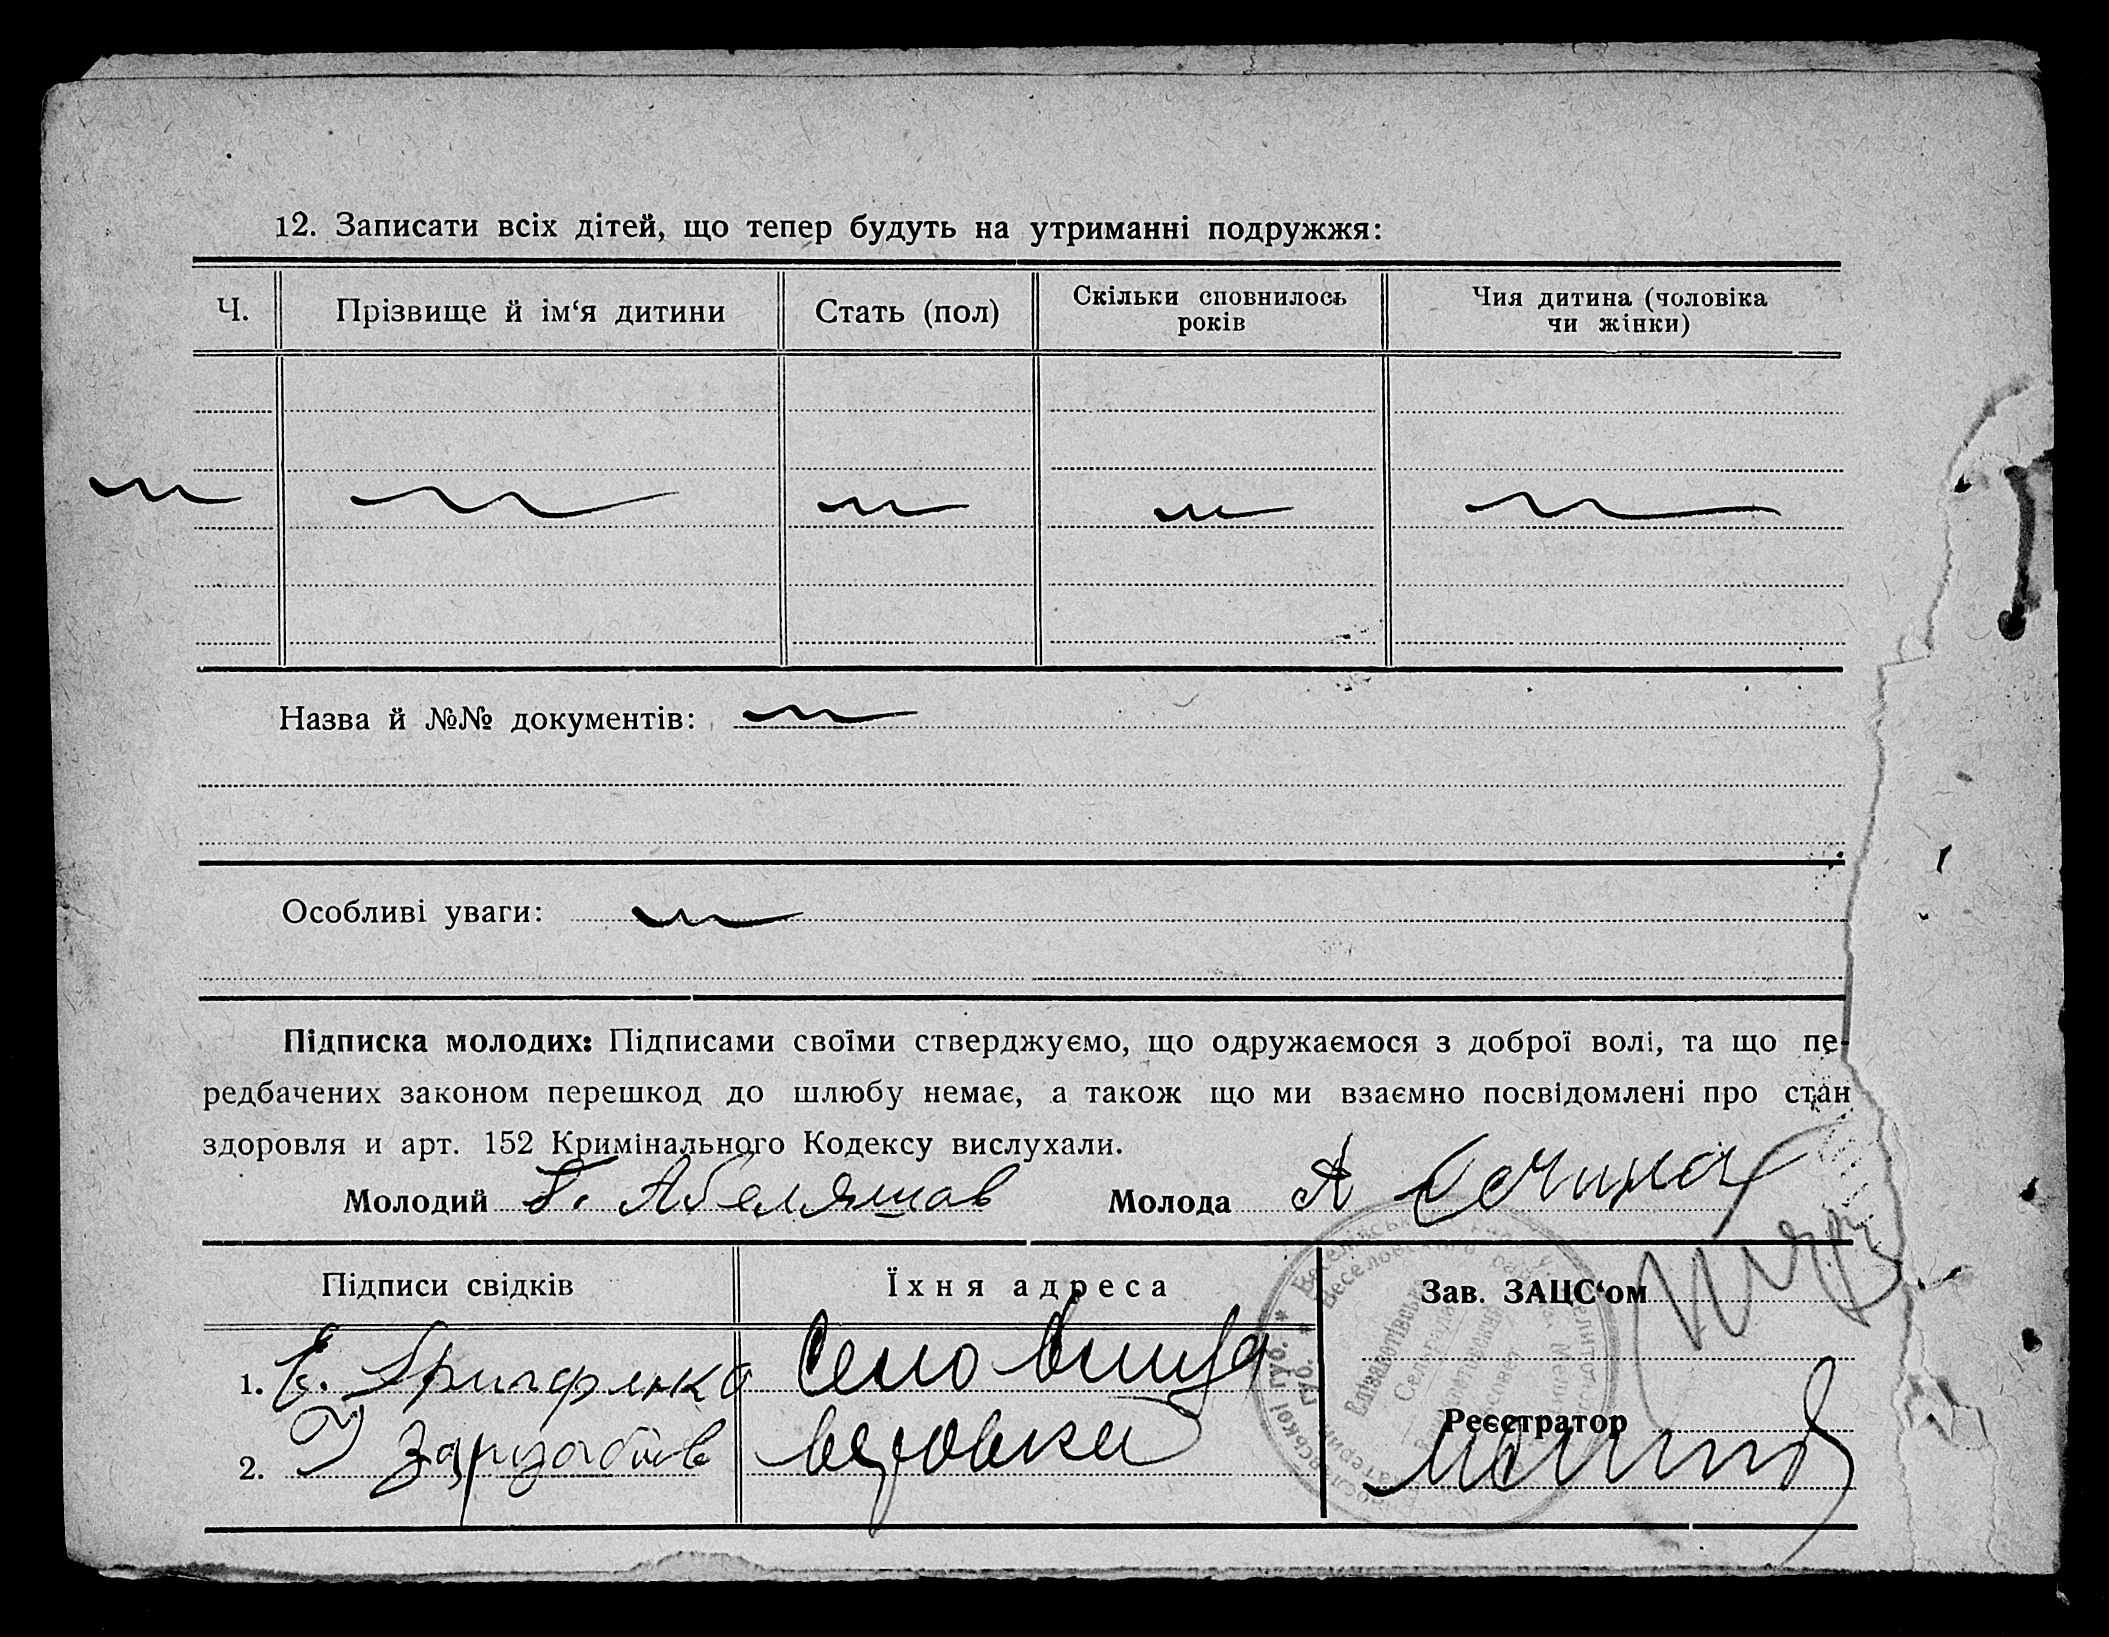 12. Записати всіх дітей, що тепер будуть на утриманні подружжя:
Ч. Прізвище й ім‘я дитини Стать (пол) Скільки сповнилось років Чия дитина (чоловіка чи жінки)
Назва й №№ документів:
Особливі уваги:
Підписка молодих: Підписами своїми стверджуємо, що одружаємося з доброї волі, та що пе-
редбачених законом перешкод до шлюбу немає, а також що ми взаємно посвідомлені про стан
здоровля и арт. 152 Кримінального Кодексу вислухали.
Молодий Абеляшов Молода А
Підписи свідків Їхня адреса Зав. ЗАЦС‘ом
1. Село
Реєстратор
2.